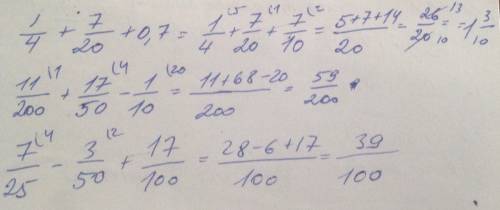 1/4 + 7/20 + 0,7 = 1/4 (5 + 7/20 (1 + 7/10 (2 = 5+7+14/20 = 26/20 13/10 = 1 3/10
11/200 (1 + 17/50 (4 - 1/10 (20 = 11+68-20/200 = 59/200
7/25 (4 - 3/50 (2 + 17/100 = 28-6+17/100 = 39/100